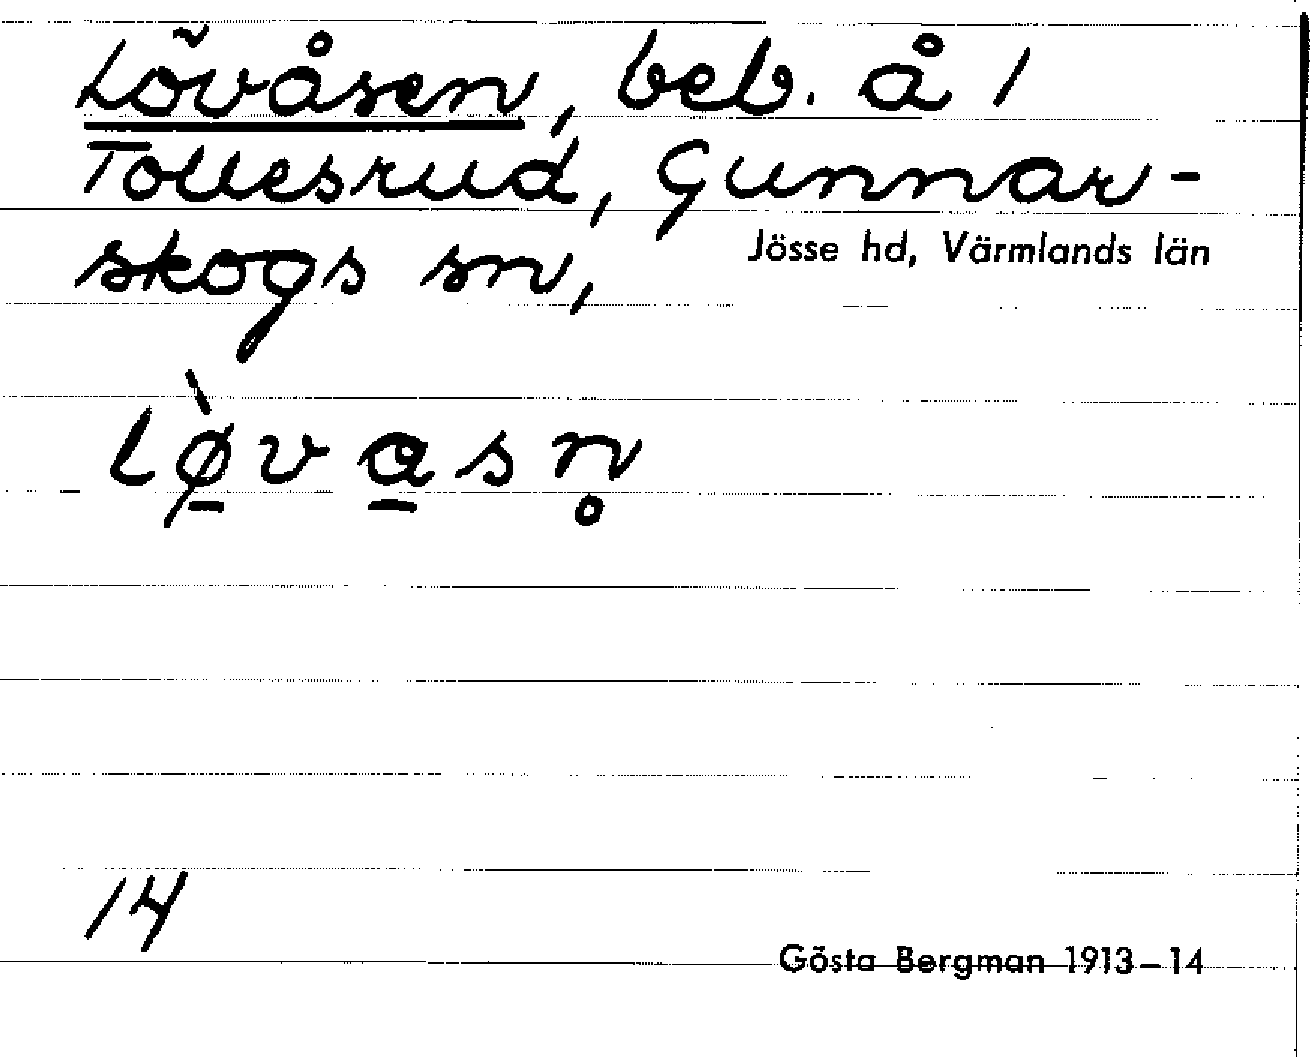 Lövåsen, beb. å 1
Tollesrud, Gunnar-
skogs sn,
Jösse hd, Värmlands län
lø̱̀va̱sn̥
14
Gösta Bergman 1913–14